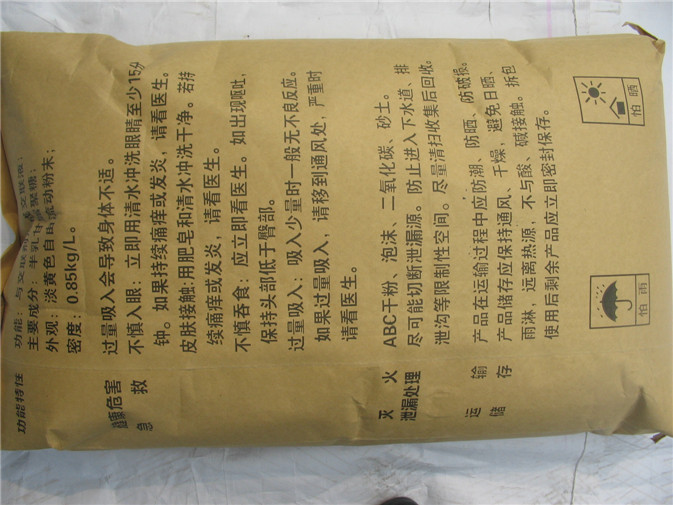 功能特性 功能：与交联 交联液；
主要成分：半乳甘 聚糖；
外观：淡黄色自由流动粉末；
密度：0.85kg/L。
健康危害 过量吸入会导致身体不适。
急救 不慎入眼：立即用清水冲洗眼睛至少15分
钟。如果持续痛痒或发炎，请看医生。
皮肤接触：用肥皂和清水冲洗干净。若持
续痛痒或发炎，请看医生。
不慎吞食：应立即看医生。如出现呕吐，
保持头部低于臀部。
过量吸入：吸入少量时一般无不良反应。
如果过量吸入，请移到通风处，严重时
请看医生。
灭火 ABC干粉、泡沫、二氧化碳、砂土。
泄漏处理 尽可能切断泄漏源。防止进入下水道、排
泄沟等限制性空间。尽量清扫收集后回收。
运输 产品在运输过程中应防潮、防晒、防破损。
储存 产品储存应保持通风、干燥，避免日晒、
雨淋，远离热源，不与酸、碱接触。拆包
使用后剩余产品应立即密封保存。
怕雨
怕晒